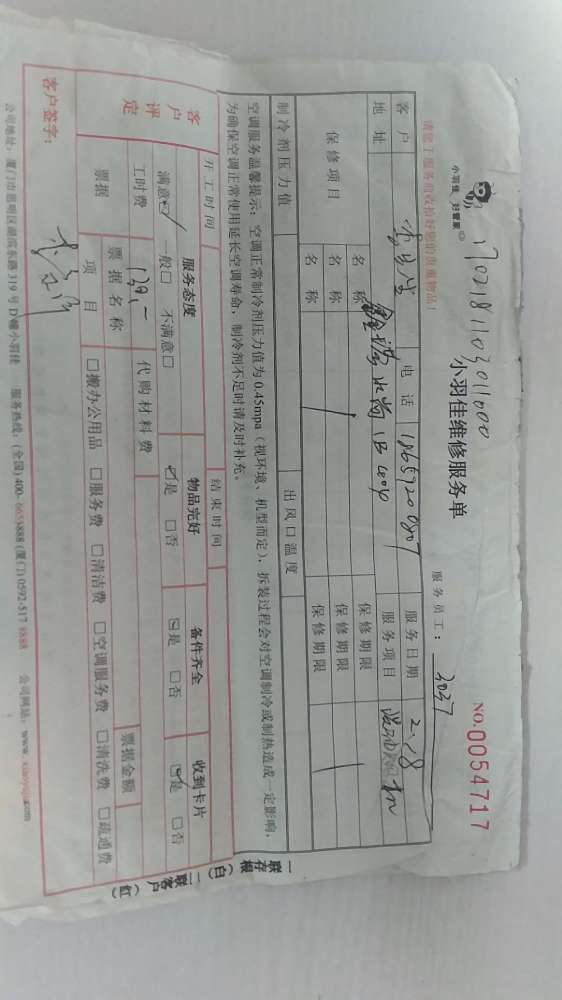 小羽佳 好管家
170218110301000
小羽佳维修服务单
NO.0054717
请您于服务前收拾好您的贵重物品！
服务员工： 3037
客户 电话 服务日期 2.18
地址 水岸 1B 服务项目
保修项目 名称 保修期限
名称 保修期限
名称 保修期限
制冷剂压力值 出风口温度
空调服务温馨提示：空调正常制冷剂压力值为0.45mpa（视环境、机型而定），拆装过程会对空调制冷或制热造成一定影响，
为确保空调正常使用延长空调寿命，制冷剂不足时请及时补充。
开工时间 结束时间
客户评定 服务态度 物品完好 备件齐全 收到卡片
满意☑ 一般□ 不满意□ ☑是 □否 ☑是 □否 ☑是 □否
工时费 130.- 代购材料费
票据 票据名称 票据金额
项目 □搬办公用品 □服务费 □清洁费 □空调服务费 □清洗费 □疏通费
客户签字：
公司地址：厦门市思明区湖滨东路319号D幢小羽佳 服务热线：(全国)400-6653888 (厦门)0592-517 8888 公司网站：www.xiaoyujia.com
一联存根（白）
二联客户（红）